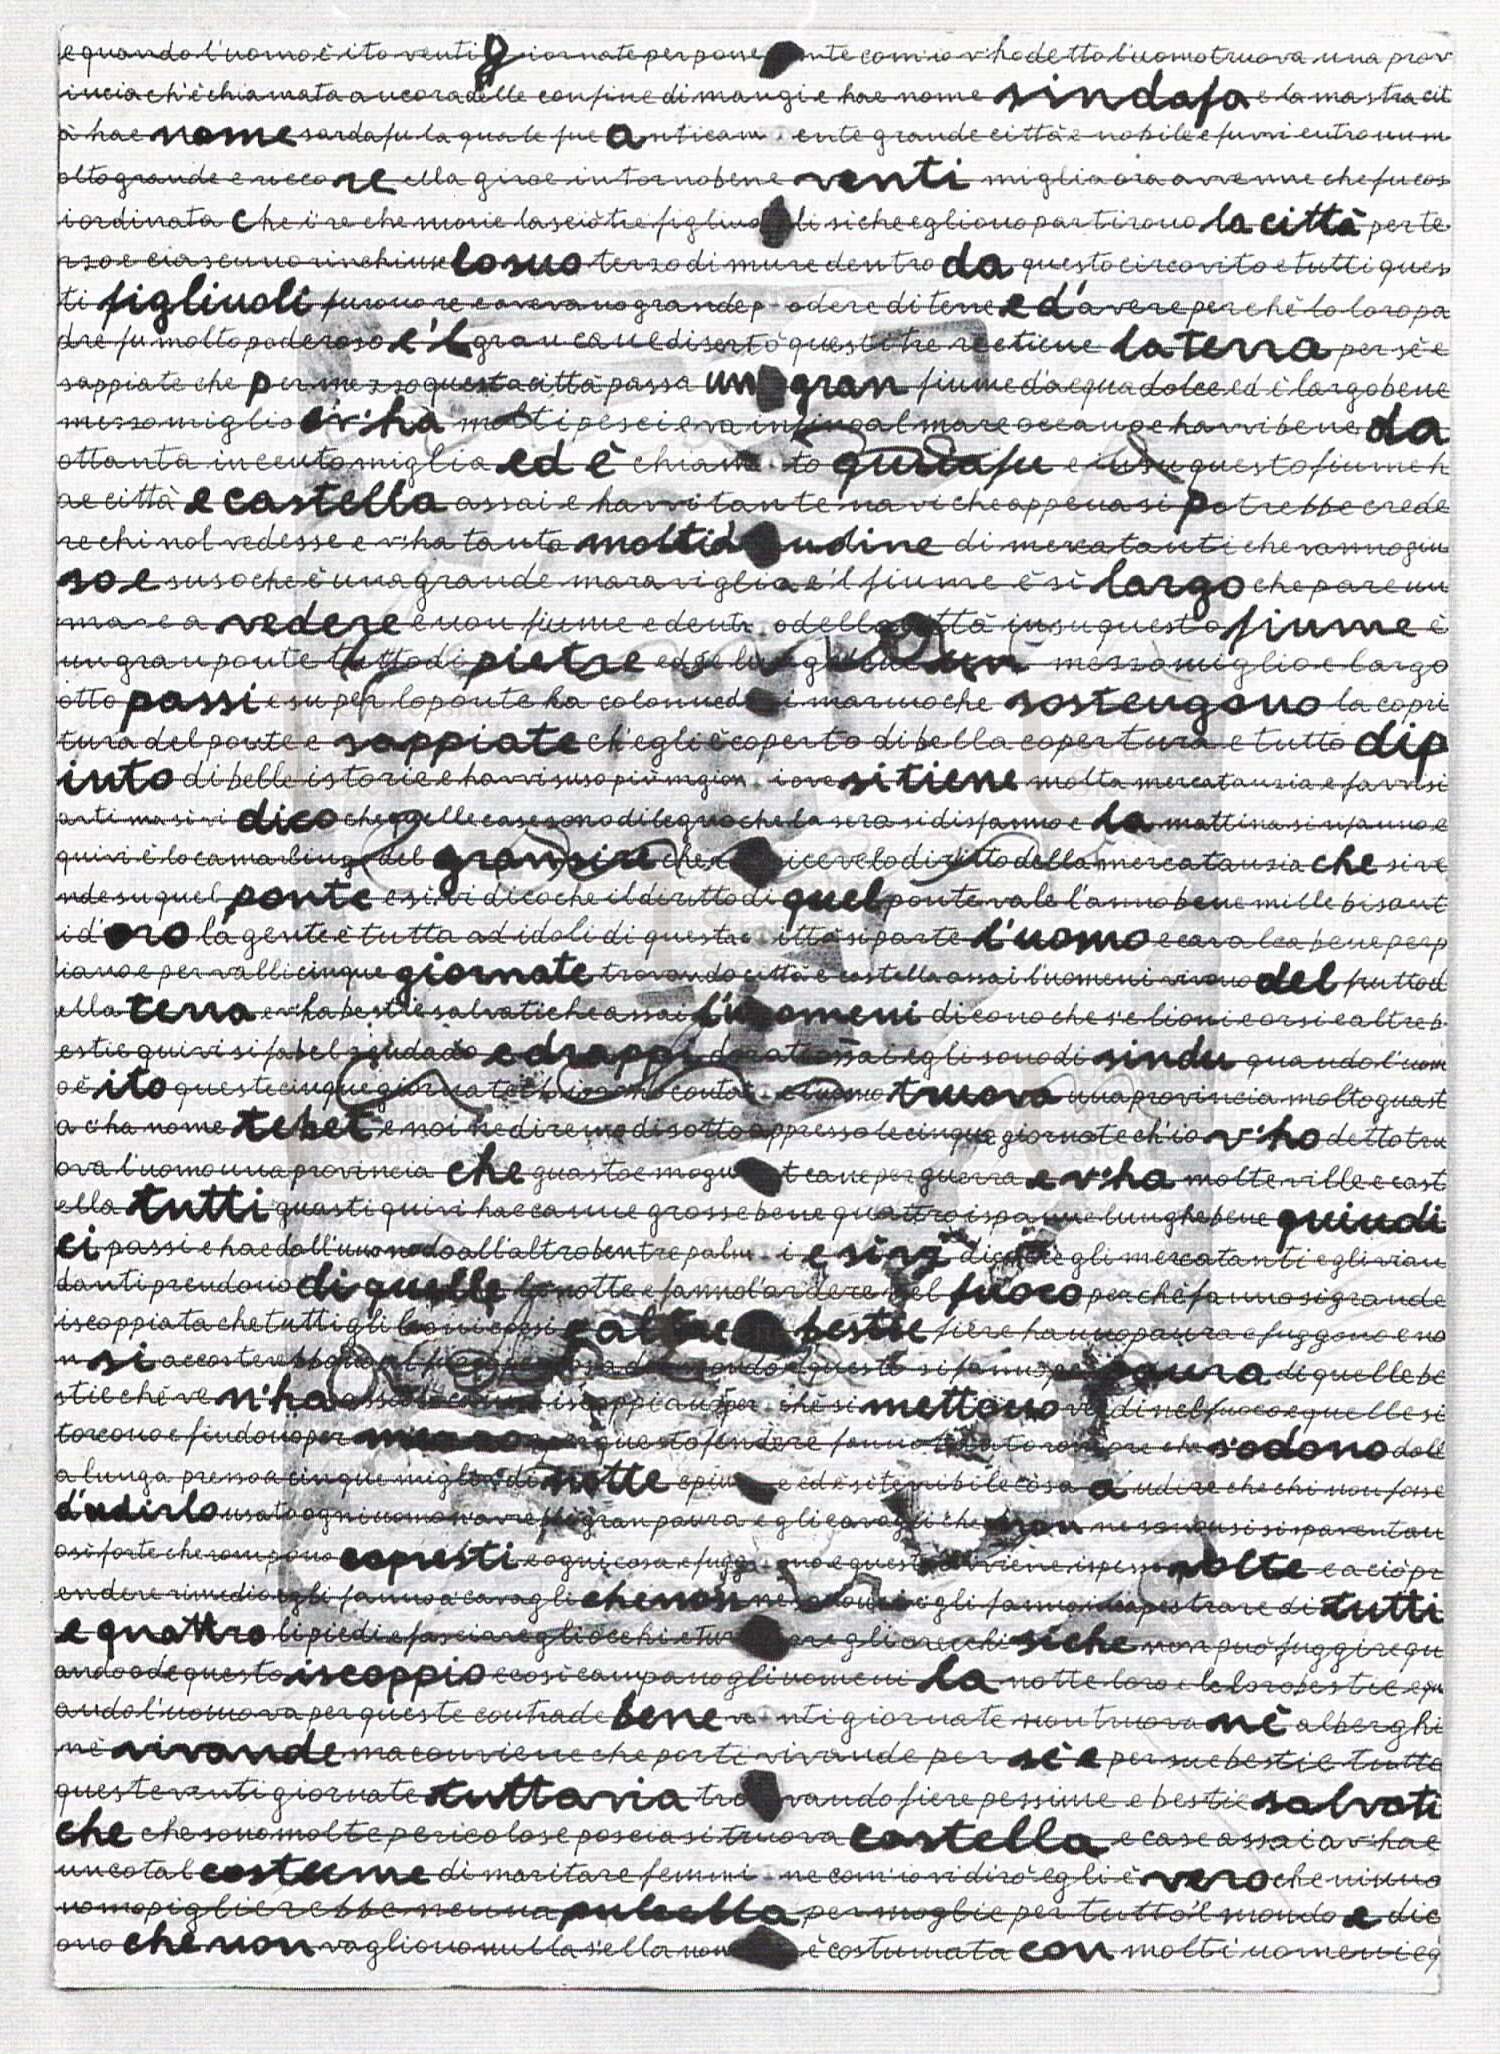 e quando l'uomo è ito venti giornate per pone nte com'io v'ho detto l'uomo truova una prov
incia ch'è chiamata ancora delle confine di mangi e hae nome sindafa e la mastra cit
à hae nome sardafu la quale fue anticam ente grande città e nobile e fuvvi entro un m
olto grande e ricco re ella giroe intorno bene venti miglia ora avvenne che fu cos
i ordinata che i re che morie lasciò tre figliuo li sicheegliono partirono la città per te
rzo e ciascuno rinchiuse lo suo terzo di mure dentro da questo circovito e tutti ques
ti figliuoli furono re e aveano grande p odere di terre ed'avere perché lo loro pa
dre fu molto poderoso e'l gran cane disertò questi tre re e tiene la terra per sé e
sappiate che per mezzo questa città passa un gran fiume d'acqua dolce ed è largo bene
mezzo miglio ev'hà molti pesci e va infino al mare occeano e havvi bene da
ottanta in cento miglia ed è chiama to quiiafu e insu questo fiume h
ae città e castella assai e havvi tante navi che appena si potrebbe crede
re chi nol vedesse e v'ha tanta moltid udine di mercatanti che vanno giu
so e suso che è una grande maraviglia e'l fiume è sì largo che pare un
mare a vedere e non fiume e dentr o della città insu questo fiume è
un gran ponte tutto di pietre ed è lungo bene un mezzo miglio e largo
otto passi e su per lo ponte ha colonne d i marmo che sostengono la copri
tura del ponte e sappiate ch'egli è coperto di bella copertura e tutto dip
into di belle istorie e havvi suso più magion i ove si tiene molta mercatanzia e favvisi
arti ma sì vi dico che quelle case sono di legno che la sera si disfanno e la mattina si rifanno e
quivi è lo camarlingo del gran sire che r iceve lo diritto della mercatanzia che si ve
nde su quel ponte e sì vi dico che il diritto di quel ponte vale l'anno bene mille bisant
i d'oro la gente è tutta ad idoli di questa c ittà si parte l'uomo e cavalca bene per p
iano e per valli cinque giornate trovando città e castella assai l'uomeni vivono del frutto d
ella terra e v'ha bestie salvatiche assai l'uomeni dicono che s'è lioni e orsi e altre b
estie quivi si fa bel zendado e drappi dorati assai egli sono di sindu quando l'uom
o è ito queste cinque giornate ch'io v'ho conta te l'uomo truova una provincia molto guast
a c'ha nome tebet e noi ne diremo di sotto appresso le cinque giornate ch'io v'ho detto tru
ova l'uomo una provincia che guastoe mogu t cane per guerra e v'ha molte ville e cast
ella tutti guasti quivi hae canne grosse bene quattro ispanne e lunghe bene quindi
ci passi e hae dall'uno nodo all'altro ben tre palm i e sìvi dico che gli mercatanti e gli vian
danti prendono di quelle la notte e fannole ardere nel fuoco perché fanno sì grande
iscoppiata che tutti gli leoni e orsi e altre bestie fiere hanno paura e fuggono e no
n si accosterebbono al fuoco per cosa del mondo e questo si fanno per paura di quelle be
stie ché ve n'ha assai le canne iscoppiano per ché si mettono verdi nel fuoco e quelle si
torcono e fendono per mezzo e per questo fendere fanno tanto romore che s'odono dall
a lunga presso a cinque miglia di notte e piu e ed è sì terribile cosa a udire che chi non fosse
d'udirlo usato ogni uomo n'avrebbe gran paura e gli cavagli che non ne sono usi si spaventan
o sì forte che rompono capresti e ogni cosa e fugg ono e questo avviene ispesse volte e a ciò pr
endere rimedio egli fanno a cavagli che non ne sono usi egli fanno incapestrare di tutti
e quattro li piedi e fasciare gli occhi e tur are gli orecchi siche non può fuggire qu
ando ode questo iscoppio e così campano gli uomeni la notte loro e le loro bestie e qu
ando l'uomo va per queste contrade bene ve nti giornate non truova né alberghi
né vivande ma conviene che porti vivande per sé e per sue bestie tutte
queste venti giornate tuttavia tro vando fiere pessime e bestie salvati
che che sono molte pericolose poscia si truova castella e case assai a v'hae
un cotal costume di maritare femmi ne com'io vi dirò egli è vero che niuno
uomo piglierebbe neuna pulcella per moglie per tutto'l mondo e dic
ono che non vagliono nulla s'ella non è costumata con molti uomeni eg